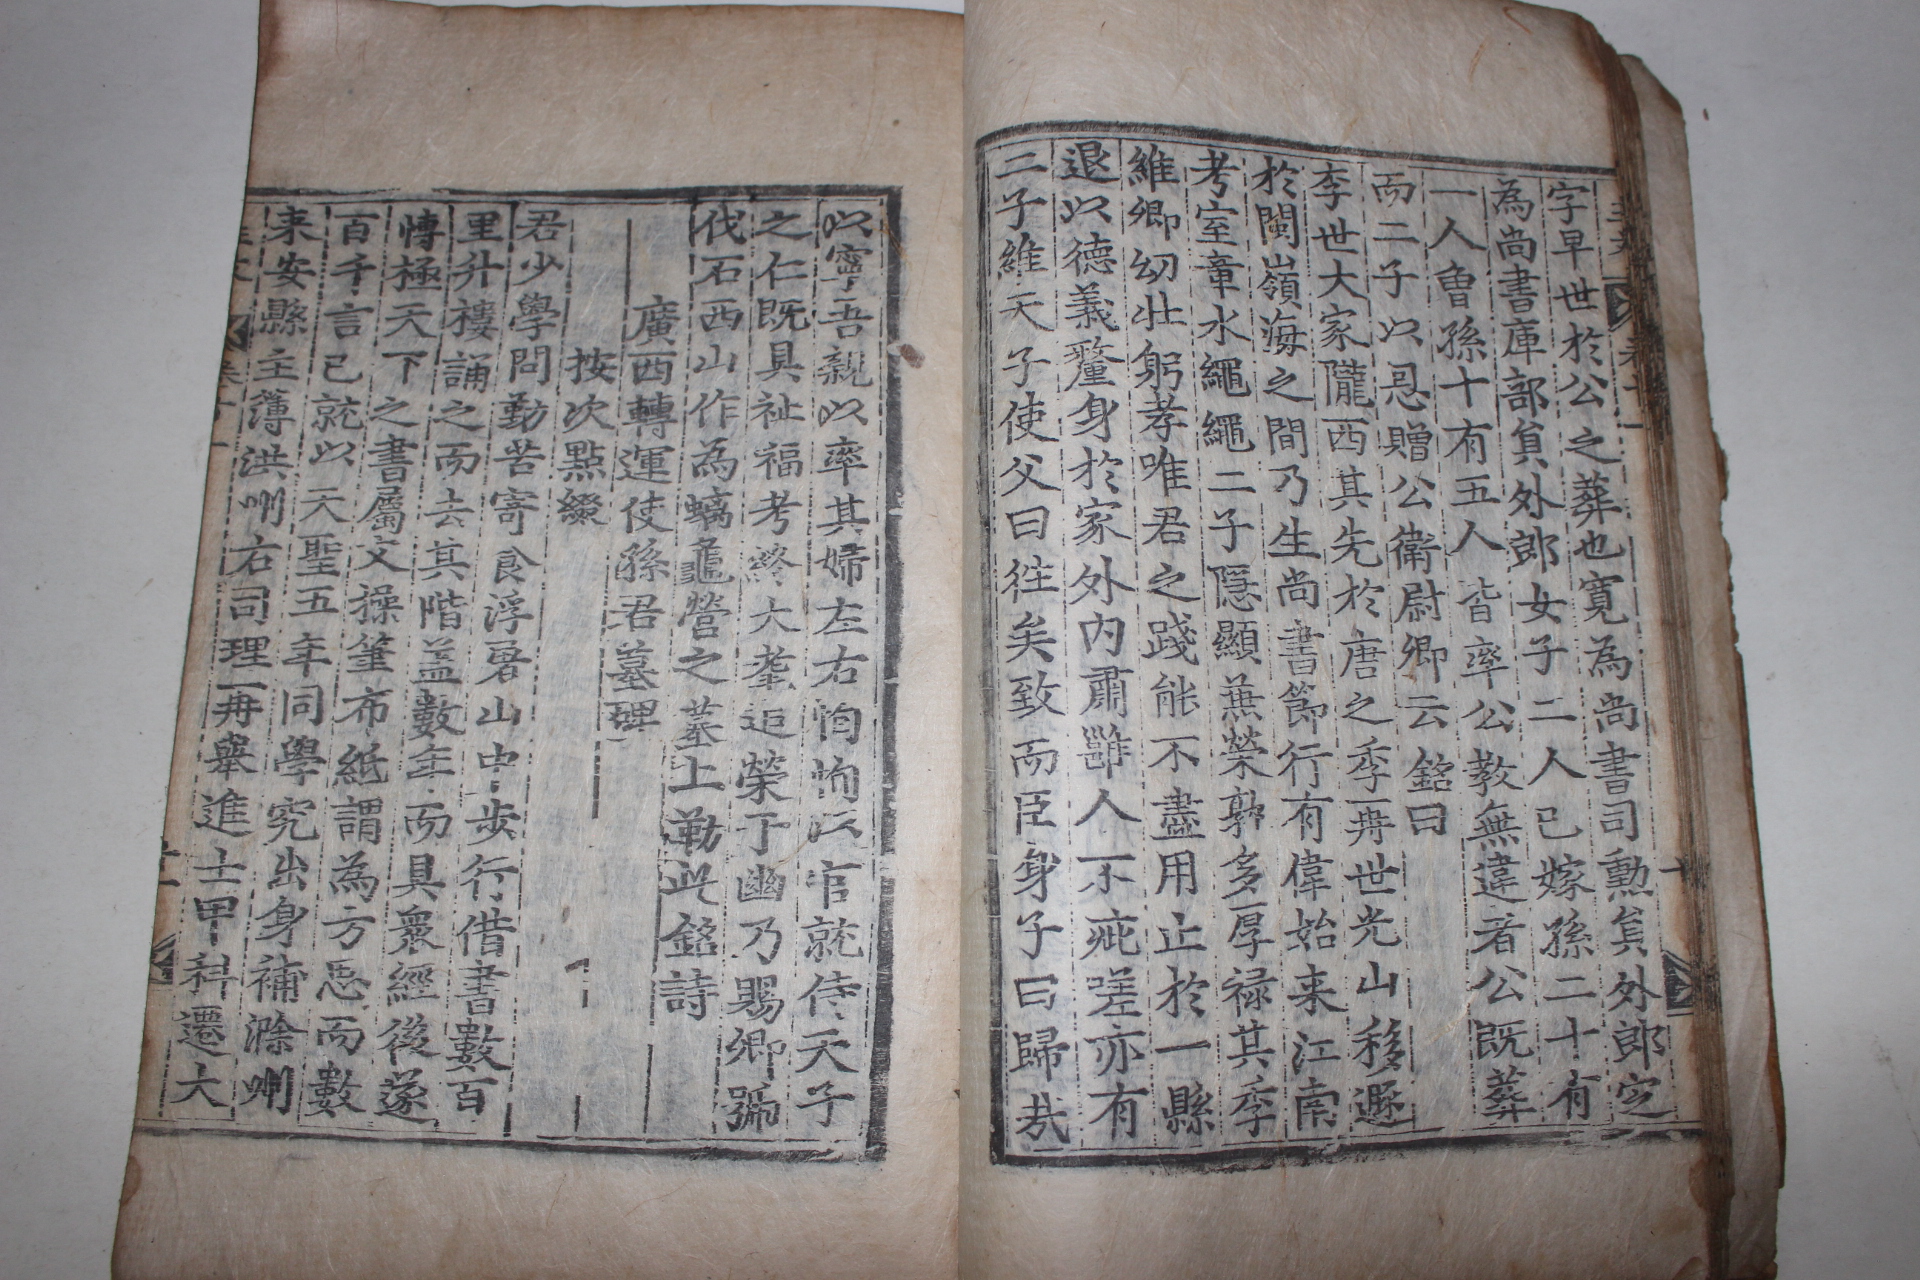 字早世於公之葬也寛為尚書司勲貟外郎定
為尚書庫部貟外郎女子二人已嫁孫二十有
一人曾孫十有五人皆率公教無違者公既葬
而二子以恩贈公衛尉卿云銘曰
李世大家隴西其先於唐之季再世光山移遯
於閩嶺海之間乃生尚書節行有偉始来江南
考室章水繩繩二子隱顯蕪榮郭多厚禄其季
維卿幼壯躬孝唯君之踐能不盡用止於一縣
退以德義釐身於家外内肅雝人不疵嗟亦有
二子維天子使父曰往矣致而臣身子曰歸哉
以寧吾親以率其婦左右恂恂以官就侍天子
之仁既具祉福考終大耋追榮于幽乃賜卿號
伐石西山作為螭龜營之墓上勒此銘詩
廣西轉運使孫君墓碑
按次㸃綴
君少學問勤苦寄食浮屠山中步行借書數百
里升樓誦之而去其階盖數年而具衆經後遂
愽極天下之書屬文操筆布紙謂為方思而數
百千言已就以天聖五年同學究出身補滁州
来安縣主薄洪州右司理再舉進士甲科遷大